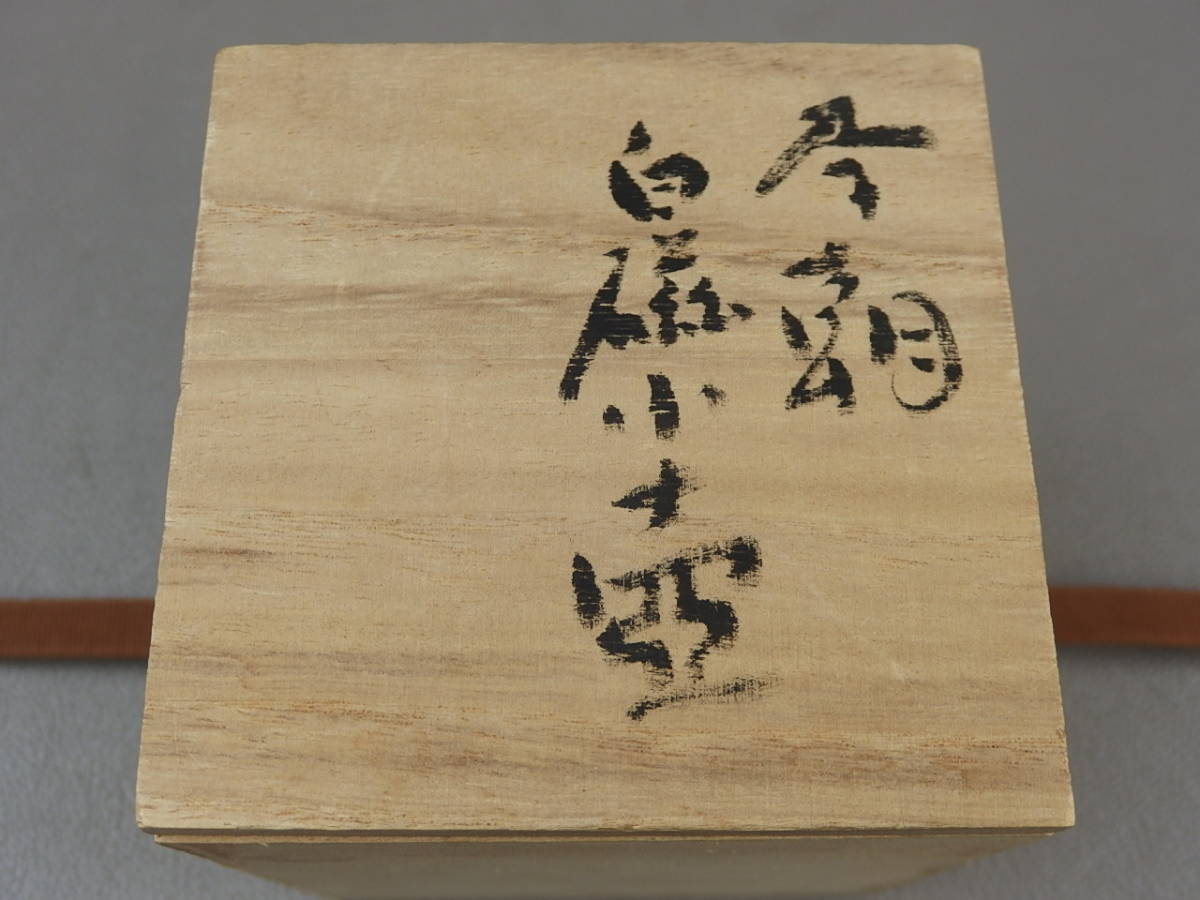 李朝
白磁小壺